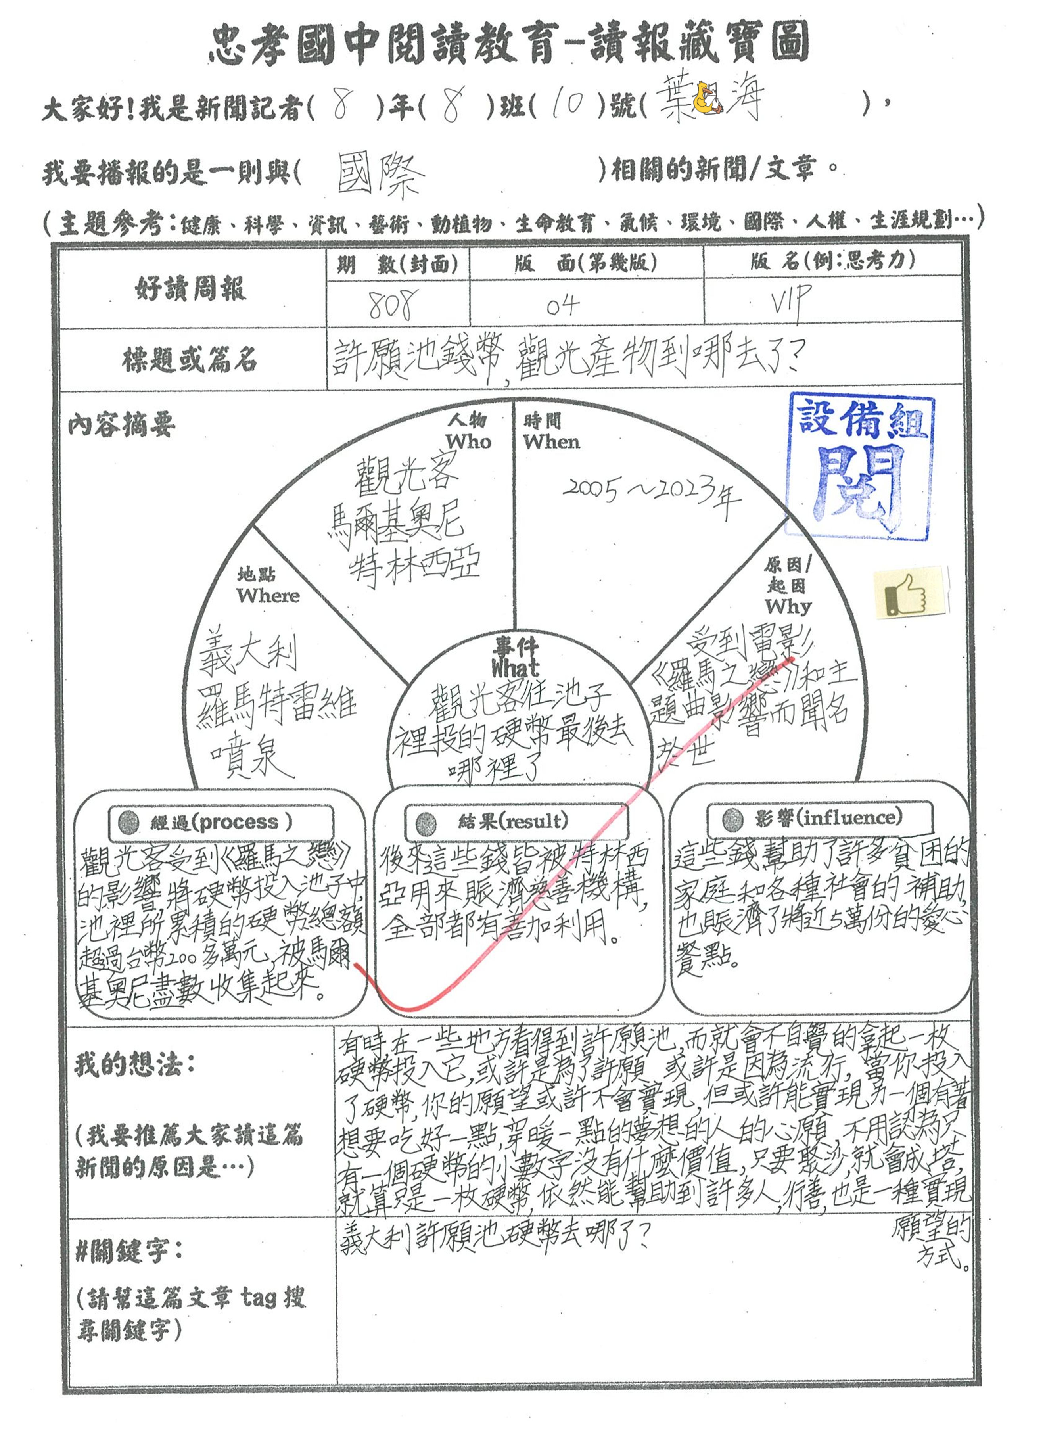 忠孝國中閱讀教育-讀報藏寶圖
大家好!我是新聞記者( 8 )年( 8 )班( 10 )號( 葉 海 )，
我要播報的是一則與( 國際 )相關的新聞/文章。
(主題參考:健康、科學、資訊、藝術、動植物、生命教育、氣候、環境、國際、人權、生涯規劃…)
好讀周報
期 數(封面)
版 面(第幾版)
版 名(例:思考力)
808
04
VIP
標題或篇名
許願池錢幣,觀光產物到哪去了?
內容摘要
人物
Who
觀光客
馬爾基奧尼
特林西亞
時間
When
2005～2023年
設備組
閱
地點
Where
義大利
羅馬特雷維
噴泉
原因/
起因
Why
受到電影
《羅馬之戀》和主
題曲影響而聞名
於世
事件
What
觀光客往池子
裡投的硬幣最後去
哪裡了
經過(process )
觀光客受到《羅馬之戀》
的影響將硬幣投入池子中,
池裡所累積的硬幣總額
超過台幣200多萬元,被馬爾
基奧尼盡數收集起來。
結果(result)
後來這些錢皆被特林西
亞用來賑濟慈善機構,
全部都有善加利用。
影響(influence)
這些錢幫助了許多貧困的
家庭和各種社會的補助,
也賑濟了將近5萬份的愛心
餐點。
我的想法:
(我要推薦大家讀這篇
新聞的原因是…)
有時在一些地方看得到許願池,而就會不自覺的拿起一枚
硬幣投入它,或許是為了許願,或許是因為流行,當你投入
了硬幣,你的願望或許不會實現,但或許能實現另一個有著
想要吃好一點,穿暖一點的夢想的人的心願,不用認為只
有一個硬幣的小數字沒有什麼價值,只要聚沙,就會成塔,
就算只是一枚硬幣,依然能幫助到許多人,行善,也是一種實現
願望的
方式。
#關鍵字:
(請幫這篇文章 tag 搜
尋關鍵字)
義大利許願池硬幣去哪了?